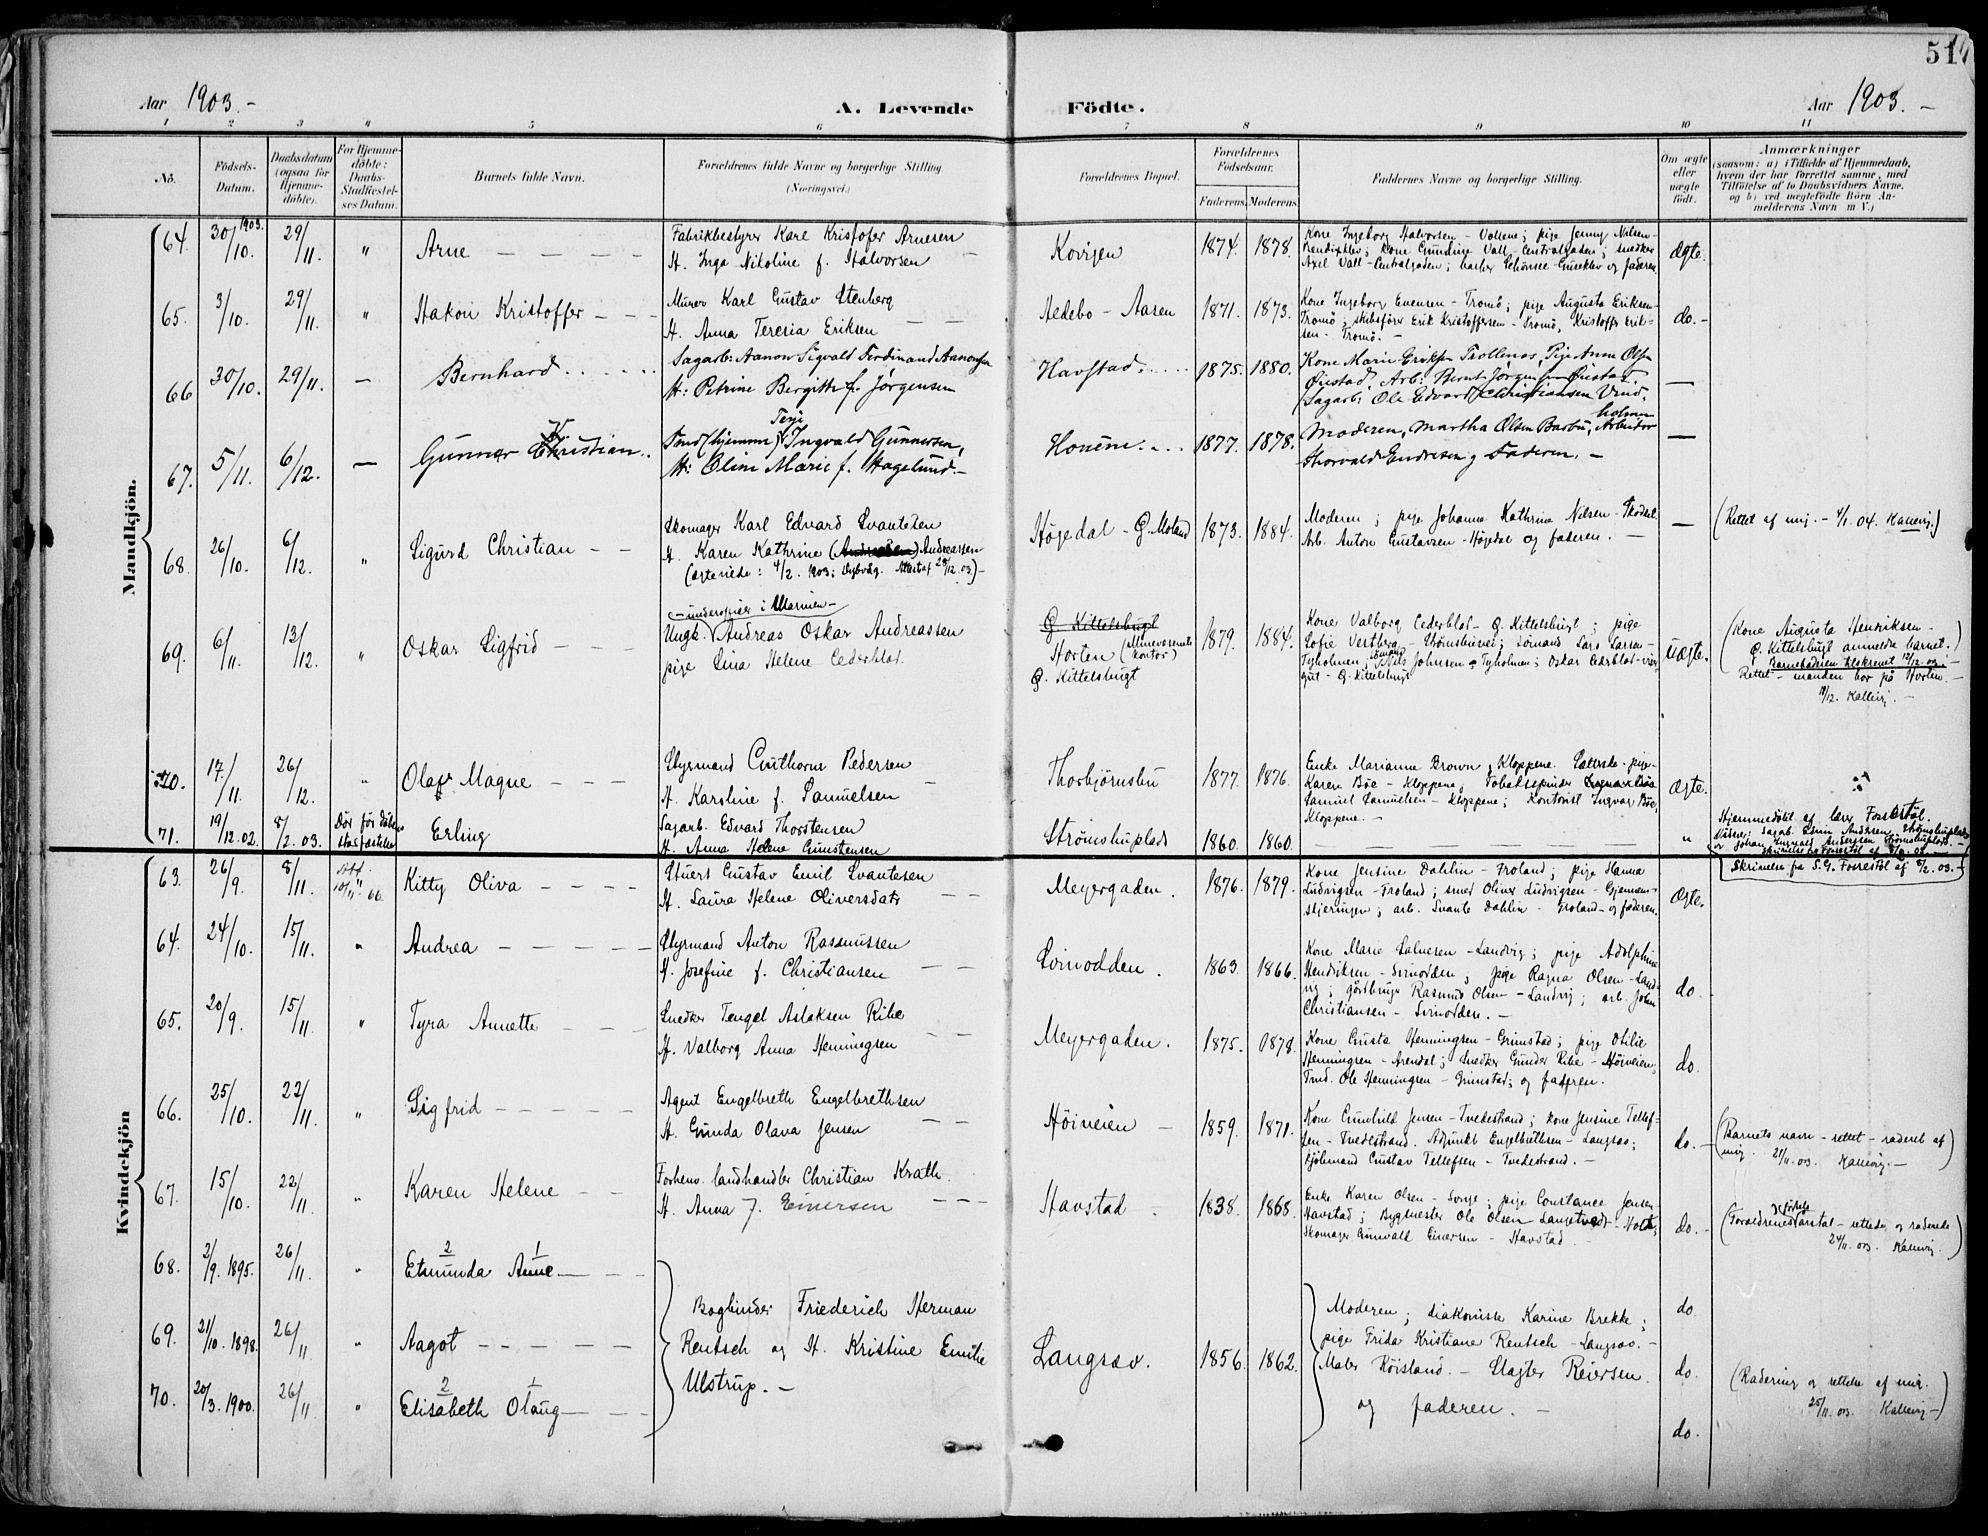 51
Aar 1903. -
A. Levende Födte.
Aar 1903. -
1 2 3 4 5 6 7 8 9 10 11
No. Födsels-Datum. Daabsdatum (ogsaa for Hjemme-döbte). For Hjemme-döbte: Daabs-Stadfæstel-ses Datum. Barnets fulde Navn. Forældrenes fulde Navne og borgerlige Stilling (Næringsvei.) Forældrenes Bopæl. Forældrenes Födselsaar. Faderens. Moderens. Faddernes Navne og borgerlige Stilling. Om ægte eller uægte födt. Anmærkninger
(saasom: a) i Tilfælde af Hjemmedaab, hvem der har forrettet samme, med Tilföielse af to Daabsvidners Navne, og b) ved uægtefödte Börn Anmelderens Navn m. V.)
Mandkjön.
64. 30/10. 1903. 29/11. " Arne
Fabrikbestyrer Karl Kristofer Arnesen
H. Inga Nikoline f. Halvorsen
Kovigen 1874. 1878.
Kone Ingeborg Halvorsen - Vollene; pige Jenny Nilsen -
Bendixklev; Kone Gundine Vall - Centralgaden; snedker
Axel Vall - Centralgaden; og faderen
Ægte.
65. 3/10. 29/11. " Hakon Kristoffer
Murer Karl Gustav Stenberg
H. Anna Teresia Eriksen
Hedebo - Aasen 1871. 1873.
Kone Ingeborg Evensen - Tromö; pige Augusta Eriksen -
Tromö; skibsförer Erik Kristoffersen - Tromö, Kristoffer Erik-
sen - Tromö. -
do. -
66 30/10. 29/11. - Bernhard
Sagarb: Aanon Sigvald Ferdinand Aanonsen
H: Petrine Bergitte f. Jörgensen
Havstad. 1875. 1880.
Kone Marie Eriksen Trollenes, Pige Anna Olsen
Öiestad, Arb: Bernt Jörgensen Öiestad.
Sagarb: Ole Edvard Christiansen Vind-
holmen
67. 5/11. 6/12. - Gunnar Kristian
Terje
Ingvald Gunnersen,
H: Oline Marie f. Hagelund. -
1877. 1878.
Moderen, Martha Olsen Barbu, Arbeider
Thorvald Endresen og Faderen. -
68. 26/10. 6/12. " Sigurd Christian
Skomager Karl Edvard Svantesen
H. Karen Kathrine Andreassen
(Ægteviede: 4/2. 1903; Dybvåg. Attest af 29/12.03) -
Högedal - Ö. Moland 1873. 1884.
Moderen; pige Johanne Kathrine Nilsen -
Arb. Anton Gustavsen - Högedal og faderen. -
(Rettet af mig. - 4/1. 04. Kallevig.)
69. 6/11. 13/12. " Oskar Sigfrid
- underofficer i Marinen -
Ungk. Andreas Oskar Andreassen
pige Lina Helene Cederblot.
Ö. Kittelsbugt
Horten (Minevæsenets kontor)
Ö. Kittelsbugt
1879. 1884.
Kone Valborg Cederblot - Ö. Kittelsbugt; pige
Sofie Vestberg - Strömsbuvei; Sömand Lars Larsen -
Tyholmen; Sömand Nils Johnsen - Tyholmen; Oskar Cedrblot -
gut - Ö. Kittelsbugt
Uægte.
(Kone Augusta Henriksen -
Ö. Kittelsbugt anmeldte barnet.)
12/12.03.
Rettet - manden bor på Horten. -
Kallevig. -
70. 17./11. 26/12. " Olaf Magne
Styrmand Guthorm Pedersen
H. Karoline f. Samuelsen
Thorbjörnsbu 1877. 1876.
Enke Marianne Brown, Kloppene. pige
Karen Böe - Kloppene, Tobakspinder
Samuel Samuelsen - Kloppene; Kontorist Ingvar Böe,
Kloppene. -
Ægte.
71. 19/12.02. 8/2.03. Död för dåbens stadfæstelse Erling
Sagarb. Edvard Thorstensen
H. Anna Helene Gunstensen
Strömsbuplads 1860. 1860. "
Hjemmedöbt af lærer Forrestöl.
Skrivelse fra S.G. Forrestöl af 8/2.03. -
Kvindekjön
63. 26/9. 8/11. Kitty Oliva
Stuert Gustav Emil Svantesen
H. Laura Helene Oliversdatr
Meyergaden. 1876. 1879.
Kone Jensine Dahlin - Froland; pige Hanna
Ludvigsen - Froland; smed Oliver Ludvigsen - Gjennem-
skjeringen; arb. Svante Dahlin - Froland - og faderen.
Ægte.
64. 24/10. 15/11. " Andrea
Styrmand Anton Rasmussen
H. Josefine f. Christiansen
Svinodden. 1863. 1866.
Kone Marie Salvesen - Landvig; pige Adolphine
Henriksen - Svinodden; pige Ragna Olsen - Land-
vig; gårdbruger Rasmus Olsen - Landvig; arb. Johan
Christiansen - Svinodden. -
do.
65. 20/9. 15/11. " Tyra Annette
Snedker Tengel Aslaksen Ribe
H. Valborg Anna Henningsen
Meyergaden. 1875. 1878.
Kone Gusta Henningsen - Grimstad; pige Otilie
Henningsen - Arendal; Snedker Gunder Ribe - Höiveien;
Ole Henningsen - Grimstad; og faderen.
do.
66. 25/10. 22/11. " Sigfrid
Agent Engelbreth Engelbrethsen
H. Gunda Olava Jensen
Höiveien 1859. 1871.
Kone Gunhild Jensen - Tvedestrand; kone Jensine Tellef-
sen - Tvedestrand. Adjunkt Engelbrethsen - Langsæ;
Sjömand Gustav Tellefsen - Tvedestrand. -
do. -
(Barnets navn - rettet - raderet af
mig. 21/11.03. Kallevig. -)
67. 15/10. 22/11. " Karen Helene
Forhenv. landhandler Christian Krath.
H. Anna f. Einersen
Havstad 1838. 1868.
Enke Karen Olsen - Songe; pige Constance Jensen
Havstad; Bygmester Ole Olsen Langetvedt - Holt;
Skomager Gunvald Einersen - Havstad
do. -
(Forældrenes årstal - rettede og raderede
24/11.03. Kallevig.)
68. 2/9. 1895. 26/11. " Edmunda Anne
69. 21/10. 1898. 26/11 " Aagot
70. 20/3. 1900. 26/11 " Elisabeth Olaug
Bogbinder Friederich Herman
Rentsch og H. Kristine Emilie
Ulstrup. -
Langsæv. 1856. 1862.
Moderen; diakonisse Karine Brekke;
pige Frida Kristiane Rentsch - Langsæv. -
Maler Röisland. - Slagter Reiersen
og faderen. -
do.
do.
do.
(Radering og rettelse af mig.
25/11.03. Kallevig -)